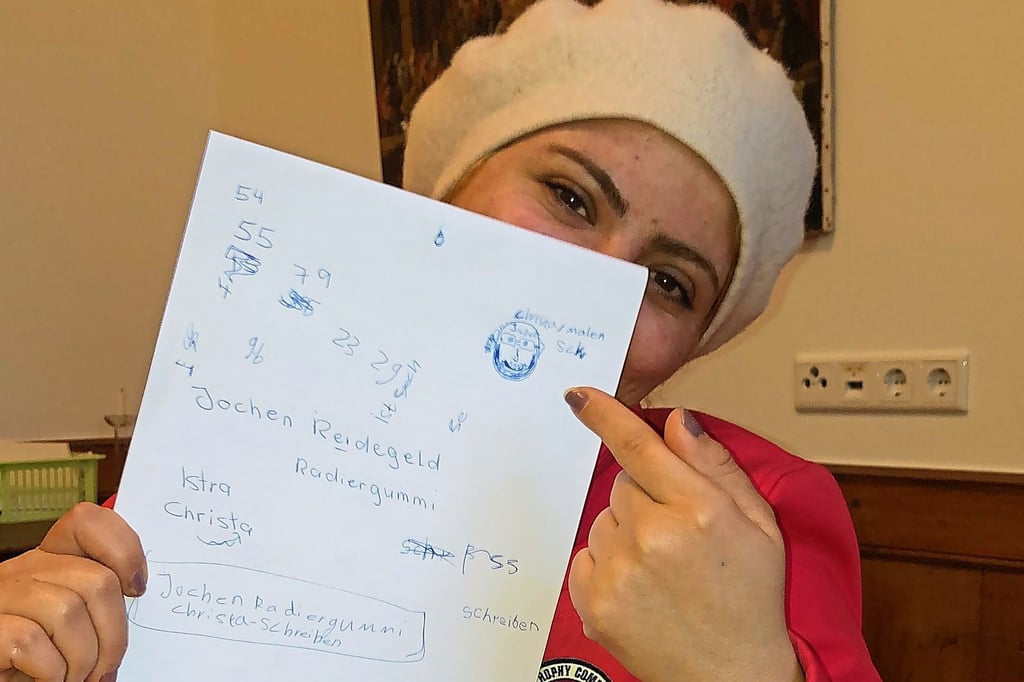 54
55
79
23 29
96
christa/malen
Sch
Jochen Reidegeld
Radiergummi
Istra
Christa
ß ss
Jochen Radiergummi
Christa-Schreiben
schreiben
OPHY COM